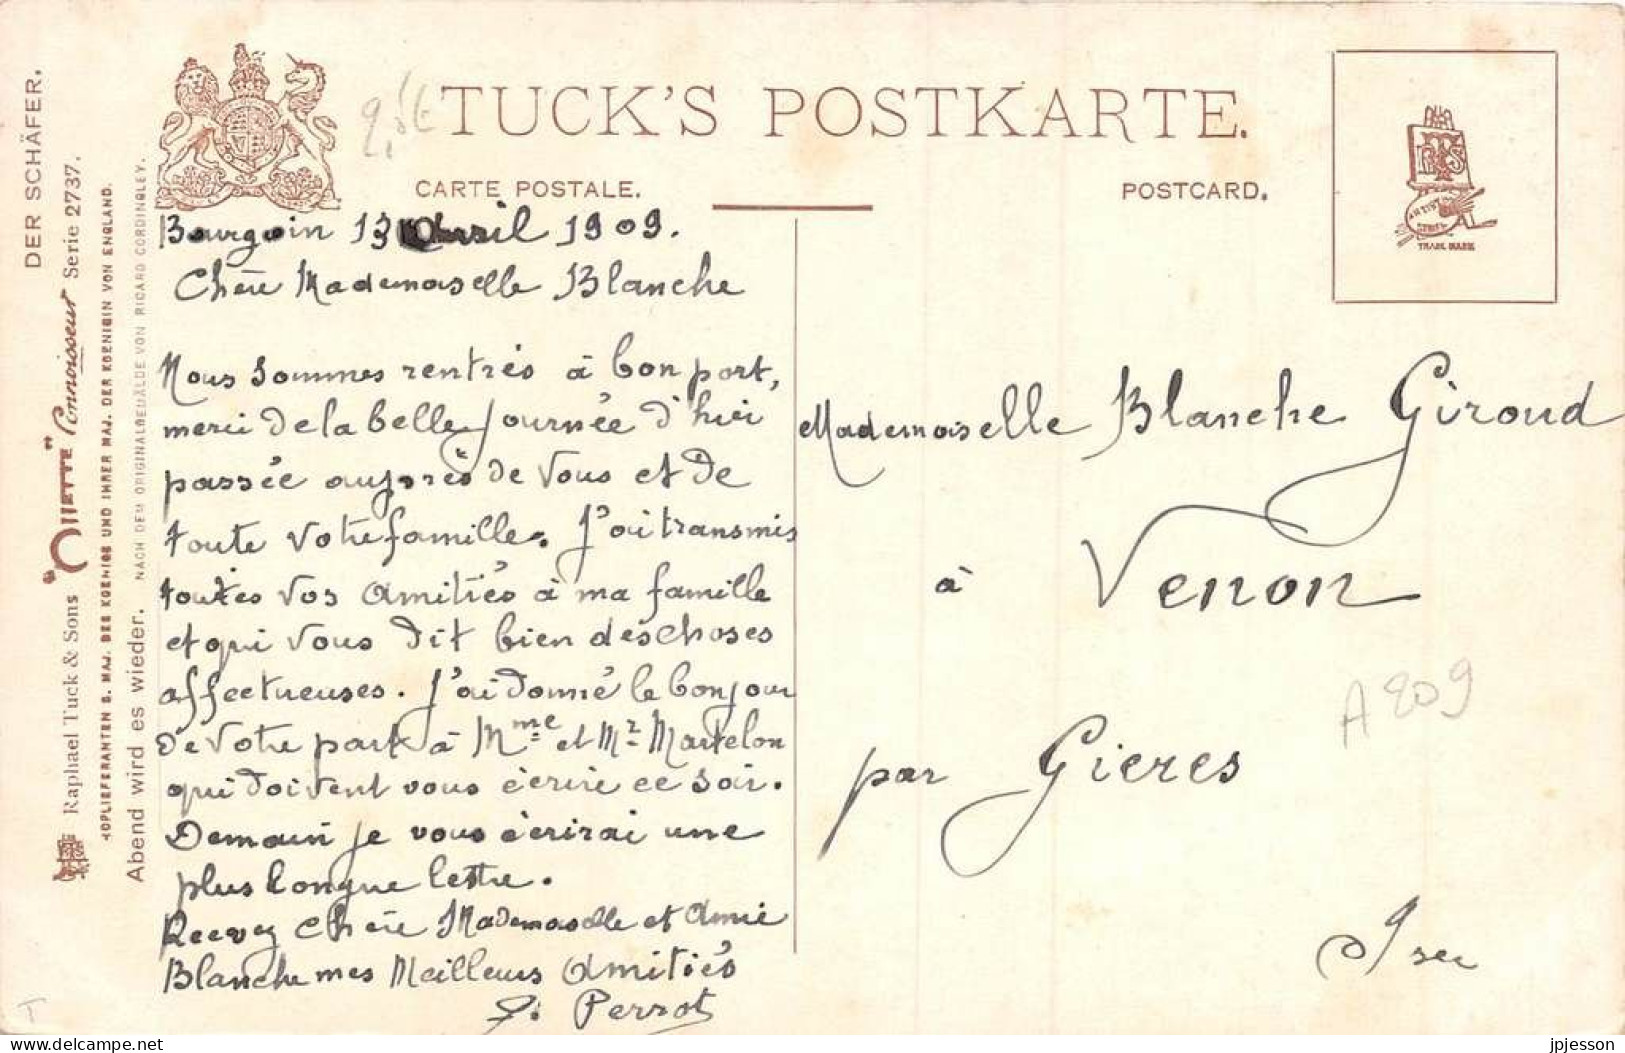 DER SCHÄFER.
Raphael Tuck & Sons "OILETTE" Connoisseur Serie 2737.
HOFLIEFERANTEN S. MAJ. DES KOENIGS UND IHRER MAJ. DER KOENIGIN VON ENGLAND.
Abend wird es wieder. NACH DEM ORIGINALGEMÄLDE VON RICARD CORDINGLEY.
TUCK'S POSTKARTE.
CARTE POSTALE.
POSTCARD.
ARTIST
SERIES
TRADE MARK
Bourgoin 13 Avril 1909.
Chère Mademoiselle Blanche
Nous sommes rentrés à bon port,
merci de la belle journée d'hier
passée auprès de vous et de
toute votre famille. J'ai transmis
toutes vos amitiés à ma famille
et qui vous dit bien des choses
affectueuses. J'ai donné le bonjour
de votre part à Mme et Mr Martelon
qui doivent vous écrire ce soir.
Demain je vous écrirai une
plus longue lettre.
Recevez chère Mademoiselle et Amie
Blanche mes Meilleurs amitiés
Perrot
Mademoiselle Blanche Giroud
à Venon
par Gieres
Isère
A 209
T
www.delcampe.net
jpjesson